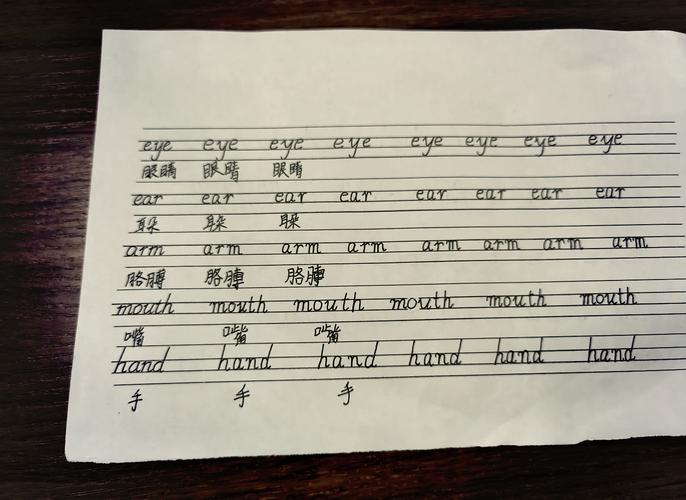 eye eye eye eye eye eye eye eye
眼睛 眼睛 眼睛
ear ear ear ear ear ear ear ear
朵 朵 朵
arm arm arm arm arm arm arm arm
胳膊 胳膊 胳膊
mouth mouth mouth mouth mouth mouth
嘴 嘴 嘴
hand hand hand hand hand hand
手 手 手